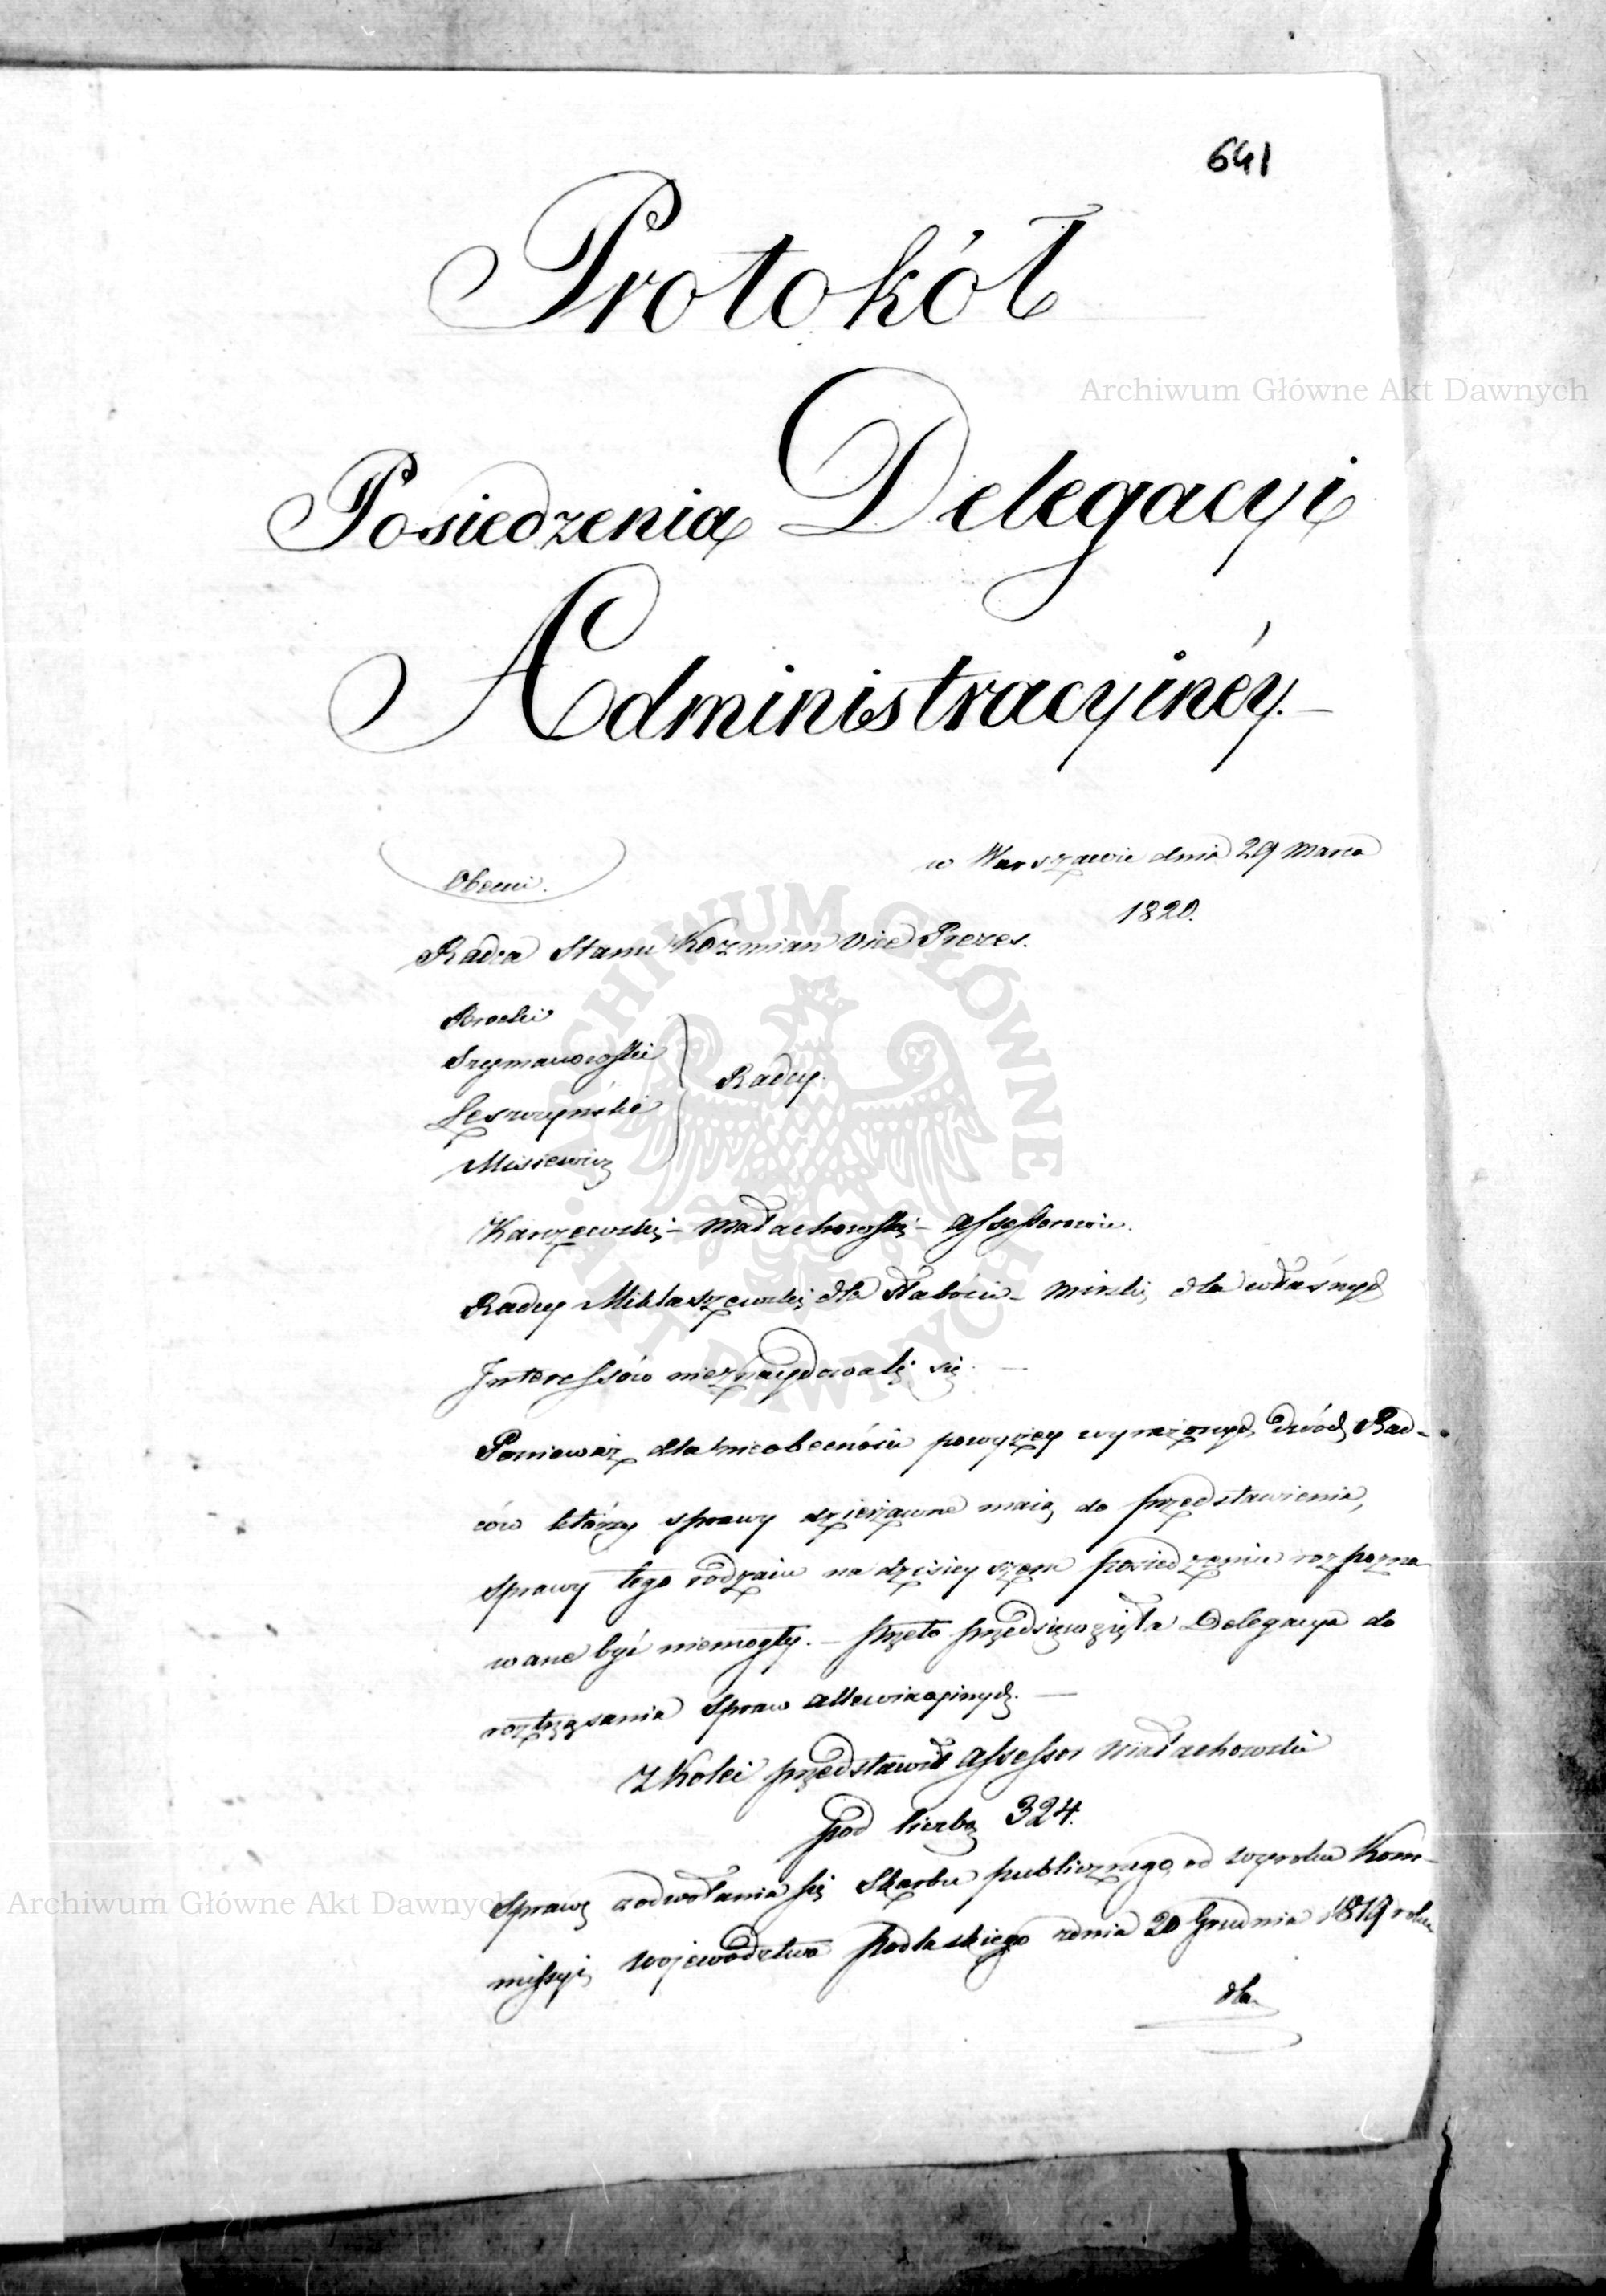 641
Protokół
Posiedzenia Delegacyi
Administracyinéy.—
w Warszawie dnia 29 Marca
1820.
Obecni.
Radca Stanu Kozmian Vice Prezes.
Brocki
Szymanowski
Łęszczyński
Misiewicz
Radcy.
Karczewski – Małachowski – Assessorowie.
Radcy Miklaszewski dla słabości – Minski dla własnych
Interessów nieznaydowali się. —
Ponieważ dla nieobecności powyżéy wyrażonych dwóch Rad-
ców którzy sprawy dzierżawne maią do przedstawienia,
sprawy tego rodzaiu na dzisieyszem posiedzeniu rozpozna
wane być niemogły. – Przeto przedsięwzięła Delegacya do
roztrząsania Spraw allewiacyinych. —
Z Kolei przedstawił Assessor Małachowski
pod liczbą 324.
Sprawę z odwołania się Skarbu publicznego od wyroku Kom-
missyi Województwa Podlaskiego z dnia 20 Grudnia 1819 roku
dla
Archiwum Główne Akt Dawnych
Archiwum Główne Akt Dawnych
ARCHIWUM GŁÓWNE AKT DAWNYCH